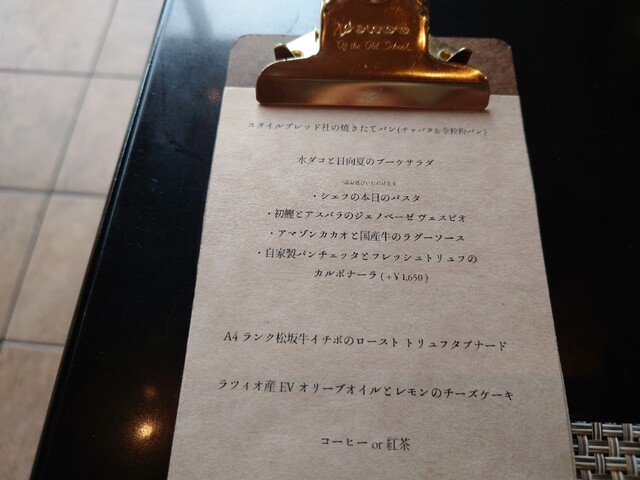 Of the Old School
スタイルブレッド社の焼きたてパン(チャバタ&全粒粉パン)
水ダコと日向夏のブーケサラダ
一品お選びいただけます
・シェフの本日のパスタ
・初鰹とアスパラのジェノベーゼ ヴェスビオ
・アマゾンカカオと国産牛のラグーソース
・自家製パンチェッタとフレッシュトリュフの
カルボナーラ (+¥1,650)
A4 ランク松坂牛イチボのロースト トリュフタプナード
ラツィオ産 EV オリーブオイルとレモンのチーズケーキ
コーヒー or 紅茶